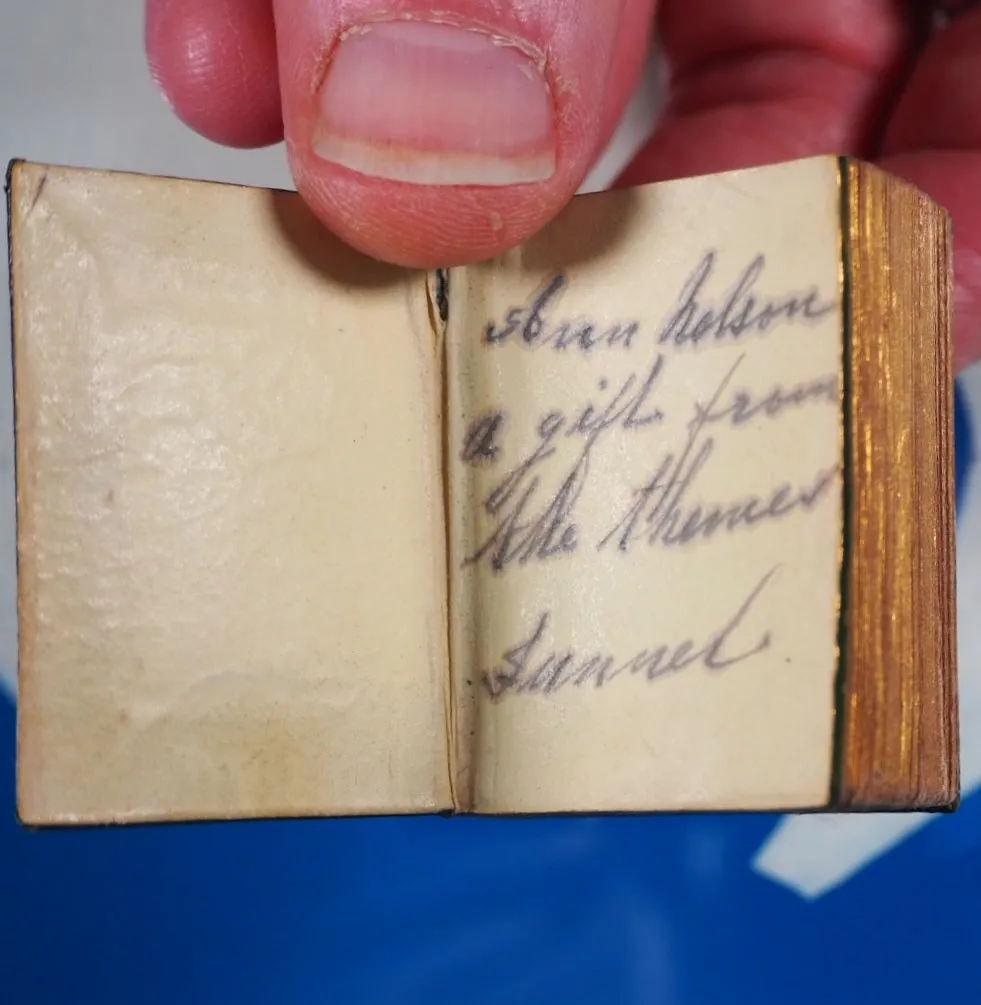 Ann Nelson
a gift from
the themes
Tunnel